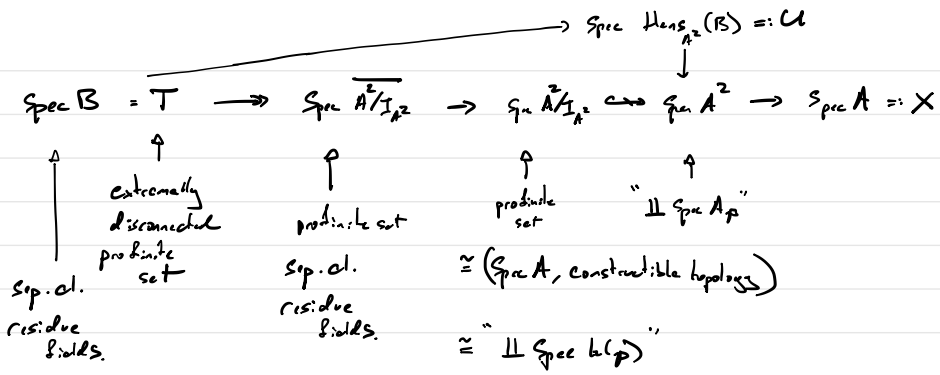 Spec Hens_{A^2}(B) =: U
Spec B = T ↠ Spec \overline{A^2/I_{A^2}} → Spec A^2/I_{A^2} ↪ Spec A^2 → Spec A =: X
extremally
disconnected
profinite
set
profinite set
profinite
set
"∐ Spec A_p"
sep. cl.
residue
fields.
sep. cl.
residue
fields.
≅ (Spec A, constructible topology)
≅ "∐ Spec k(p)"